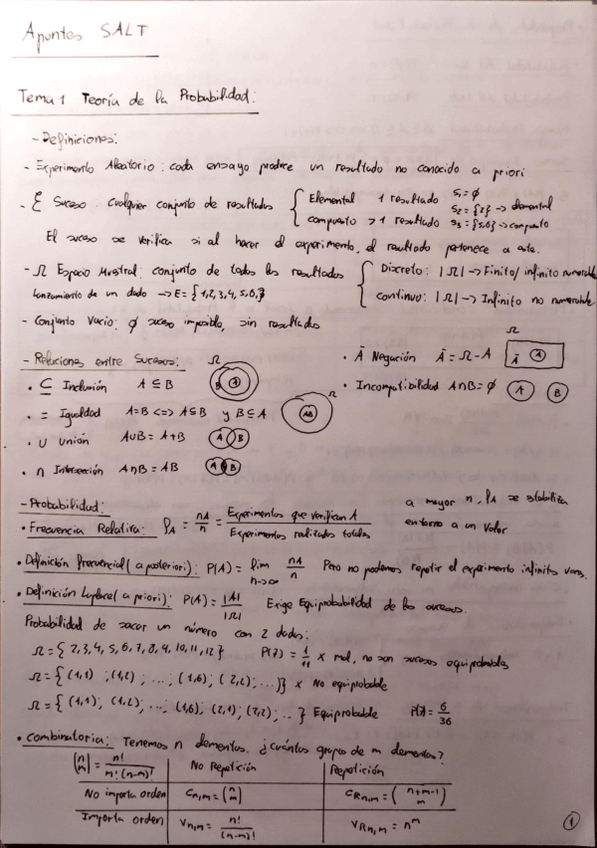 Apuntes SALT
Tema 1 Teoría de la Probabilidad:
- Definiciones:
- Experimento Aleatorio: cada ensayo produce un resultado no conocido a priori
- Ɛ Suceso: Cualquier conjunto de resultados { Elemental 1 resultado S₁ = ø
S₂ = {2} → elemental
compuesto > 1 resultado S₃ = {5,6} → compuesto
El suceso se verifica si al hacer el experimento, el resultado pertenece a este.
- Ω Espacio Muestral: conjunto de todos los resultados { Discreto: |Ω| → Finito/ infinito numerable
Lanzamiento de un dado → E = {1,2,3,4,5,6,} continuo: |Ω| → Infinito no numerable
- Conjunto Vacio: ø suceso imposible, sin resultados
- Relaciones entre Sucesos: Ω
• ⊆ Inclusión A ⊆ B B A
• = Igualdad A=B <=> A⊆B y B⊆A AB Ω
• ∪ Unión A∪B = A+B A B
• ∩ Intersección A∩B = AB A B
• Ā Negación Ā = Ω - A Ω Ā A
• Incompatibilidad A∩B = ø A B
- Probabilidad:
• Frecuencia Relativa: ρA = nA/n = Experimentos que verifican A / Experimentos realizados totales
a mayor n, ρA se stabiliza
entorno a un valor
• Definición frecuencial (a posteriori): P(A) = lim n→∞ nA/n Pero no podemos repetir el experimento infinitas veces.
• Definición Laplace (a priori): P(A) = |A|/|Ω| Exige Equiprobabilidad de los sucesos.
Probabilidad de sacar un número con 2 dados:
Ω = {2,3,4,5,6,7,8,9,10,11,12} P(7) = 1/11 x mal, no son sucesos equiprobables
Ω = {(1,1) ; (1,2) ; ...; (1,6); (2,2); ...}} x No equiprobable
Ω = {(1,1); (1,2); ...; (1,6); (2,1); (2,2); ..} Equiprobable P(7) = 6/36
• Combinatoria: Tenemos n elementos. ¿Cuántos grupos de m elementos?
(n m) = n!/m!(n-m)! No Repetición Repetición
No importa orden Cn,m = (n m) CRn,m = (n+m-1 m)
Importa orden Vn,m = n!/(n-m)! VRn,m = nᵐ
1